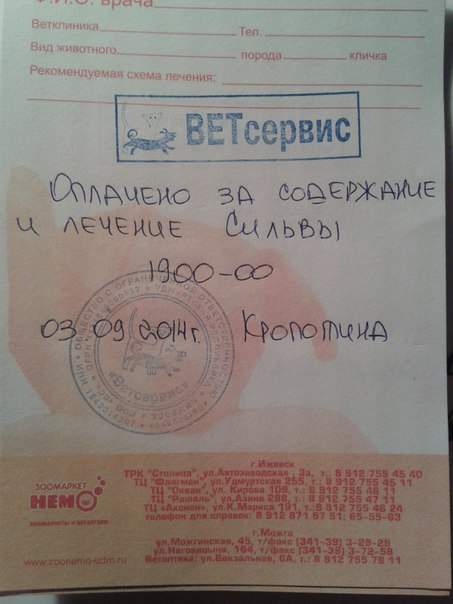 Ф.И.О. врача
Ветклиника Тел.
Вид животного порода кличка
Рекомендуемая схема лечения:
ВЕТсервис
Оплачено за содержание
и лечение Сильвы
1900-00
03.09.2014г. Кропотина
ОБЩЕСТВО С ОГРАНИЧЕННОЙ ОТВЕТСТВЕННОСТЬЮ
"Ветсервис"
ЗООМАРКЕТ
НЕМО
www.zoonemo-udm.ru
г.Ижевск
ТРК "Столица", ул.Автозаводская , 3а, т.: 8 912 755 45 40
ТЦ "Флагман", ул.Удмуртская 255, т.: 8 912 755 45 11
ТЦ "Океан", ул. Кирова 109, т.: 8 912 755 46 11
ТЦ "Рашель", ул.Азина 286, т.: 8 912 755 47 11
ТЦ «Аксион», ул.К.Маркса 191, т.: 8 912 755 46 24
телефон для справок: 8 912 871 57 51; 65-55-63
г.Можга
ул.Можгинская, 45, т/факс (341-39) 3-29-29
ул.Наговицына, 164, т/факс (341-39) 3-72-58
Ветаптека: ул.Вокзальная, 6А, т.: 8 912 755 78 11